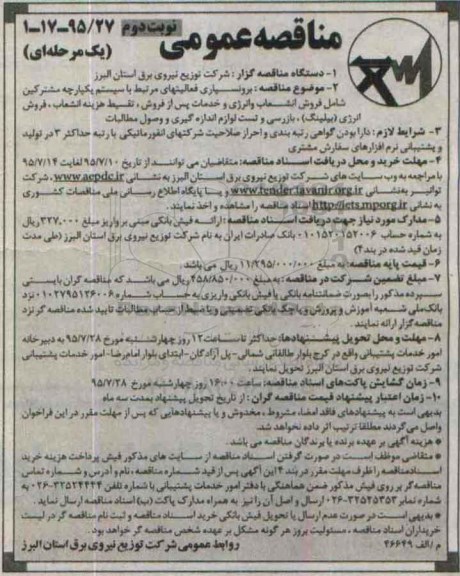 مناقصه عمومی
نوبت دوم
۱-۱۷-۹۵/۲۷
(یک مرحله‌ای)
۱- دستگاه مناقصه گزار : شرکت توزیع نیروی برق استان البرز
۲-موضوع مناقصه : برونسپاری فعالیتهای مرتبط با سیستم یکپارچه مشترکین
شامل فروش انشعاب وانرژی و خدمات پس از فروش ، تقسیط هزینه انشعاب ، فروش
انرژی (بیلینگ) ، بازرسی و تست لوازم اندازه گیری و وصول مطالبات
۳- شرایط لازم : دارا بودن گواهی رتبه بندی و احراز صلاحیت شرکتهای انفورماتیکی با رتبه حداکثر ۳ در تولید
و پشتیبانی نرم افزارهای سفارش مشتری
۴- مهلت خرید و محل دریافت اسناد مناقصه: متقاضیان می توانند از تاریخ ۹۵/۷/۱۰ لغایت ۹۵/۷/۱۴
با مراجعه به وب سایت های شرکت توزیع نیروی برق استان البرز به نشانی www.aepdc.ir، شرکت
توانیر به نشانی www.tender.tavanir.org.ir و یا پایگاه اطلاع رسانی ملی مناقصات کشوری
به نشانی http://iets.mporg.ir اسناد مناقصه را مشاهده و اخذ نمایند.
۵- مدارک مورد نیاز جهت دریافت اسناد مناقصه : ارائه فیش بانکی مبنی بر واریز مبلغ ۳۳۷٫۰۰۰ ریال
به شماره حساب ۰۱۰۱۵۲۰۱۵۲۰۰۶ بانک صادرات ایران به نام شرکت توزیع نیروی برق استان البرز (طی مدت
زمان قید شده در بند۴)
۶- قیمت پایه مناقصه : به مبلغ ۱۱/۲۹۵/۰۰۰/۰۰۰ ریال می باشد
۷- مبلغ تضمین شرکت در مناقصه : به مبلغ ۴۵۸/۸۵۰/۰۰۰ ریال می باشد که مناقصه گران بایستی
سپرده مذکور را بصورت ضمانتنامه بانکی یا فیش بانکی واریزی به حساب شماره ۰۱۰۲۷۹۵۱۲۶۰۰۶ نزد
بانک ملی شعبه آموزش و پرورش و یا چک بانکی تضمینی و یا ضبط از حساب مطالبات تایید شده مناقصه گر نزد
مناقصه گزار ارائه نمایند
۸- مهلت و محل تحویل پیشنهادها: حداکثر تا ساعت ۱۲ روز چهارشنبه مورخ ۹۵/۷/۲۸ به دبیرخانه
امور خدمات پشتیبانی واقع در کرج بلوار طالقانی شمالی-پل آزادگان-ابتدای بلوار امام رضا- امور خدمات پشتیبانی
شرکت توزیع نیروی برق استان البرز تحویل نمایند
۹- زمان گشایش پاکت‌های اسناد مناقصه: ساعت ۱۶:۰۰ روز چهارشنبه مورخ ۹۵/۷/۲۸
۱۰- زمان اعتبار پیشنهاد قیمت مناقصه گران : از تاریخ تحویل پیشنهاد بمدت سه ماه
بدیهی است به پیشنهادهای فاقد امضا، مشروط ، مخدوش و یا پیشنهادهایی که پس از مهلت مقرر در این فراخوان
واصل می گردند مطلقا ترتیب اثر داده نخواهد شد.
* هزینه آگهی بر عهده برنده یا برندگان مناقصه می باشد.
* متقاضی موظف است در صورت گرفتن اسناد مناقصه از سایت های مذکور فیش پرداخت هزینه خرید
اسناد مناقصه را ظرف مهلت مقرر در بند ۴ این آگهی پس از قید شماره مناقصه ، نام و آدرس و شماره تماس
مناقصه گر بر روی فیش مذکور ضمن هماهنگی با دفتر امور خدمات پشتیبانی با شماره تلفن ۳۲۵۲۴۴۴۴-۰۲۶ به
شماره نمابر ۳۲۵۲۵۳۵۳-۰۲۶ ارسال و اصل آن را نیز به همراه مدارک پاکت (ب) اسناد مناقصه ارسال نماید.
* بدیهی است در صورت عدم ارسال یا تحویل فیش بانکی خرید اسناد مناقصه و ثبت نام مناقصه گر در لیست
خریداران اسناد مناقصه ، مسئولیت بروز هر گونه مشکل بر عهده شخص مناقصه گر خواهد بود.
م / الف ۴۶۶۴۹
روابط عمومی شرکت توزیع نیروی برق استان البرز